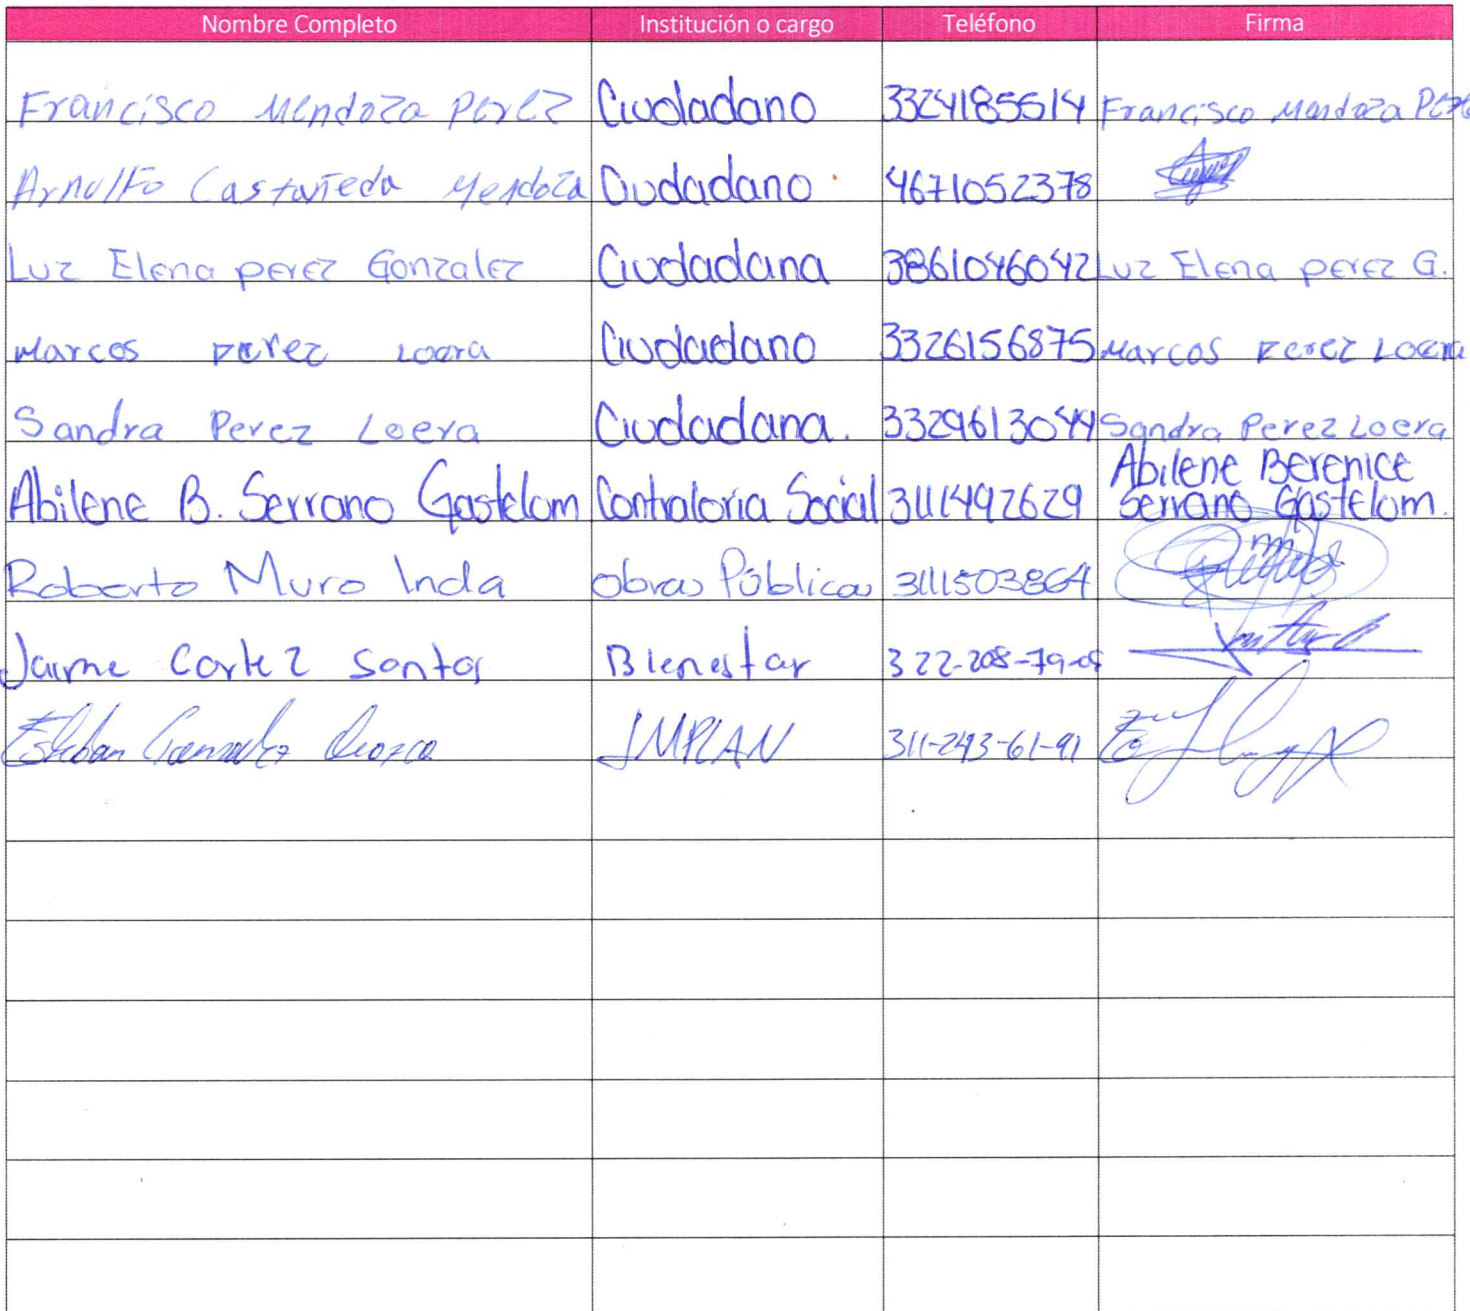 Nombre Completo Institución o cargo Teléfono Firma
Francisco Mendoza Perez Ciudadano 3324185514 Francisco Mendoza Perez
Arnulfo Castañeda Mendoza Ciudadano 4671052378
Luz Elena perez Gonzalez Ciudadana 3861046042 Luz Elena perez G.
Marcos perez Loera Ciudadano 3326156875 Marcos Perez Loera
Sandra Perez Loera Ciudadana. 3329613044 Sandra Perez Loera
Abilene B. Serrano Gastelom Contraloria Social 3111492629 Abilene Berenice
Serrano Gastelom.
Roberto Muro Inda obras Públicas 3111503864
Jaime Cortez Santos Bienestar 322-208-79-05
Esteban Gonzalez Orozco IMPLAN 311-243-61-91